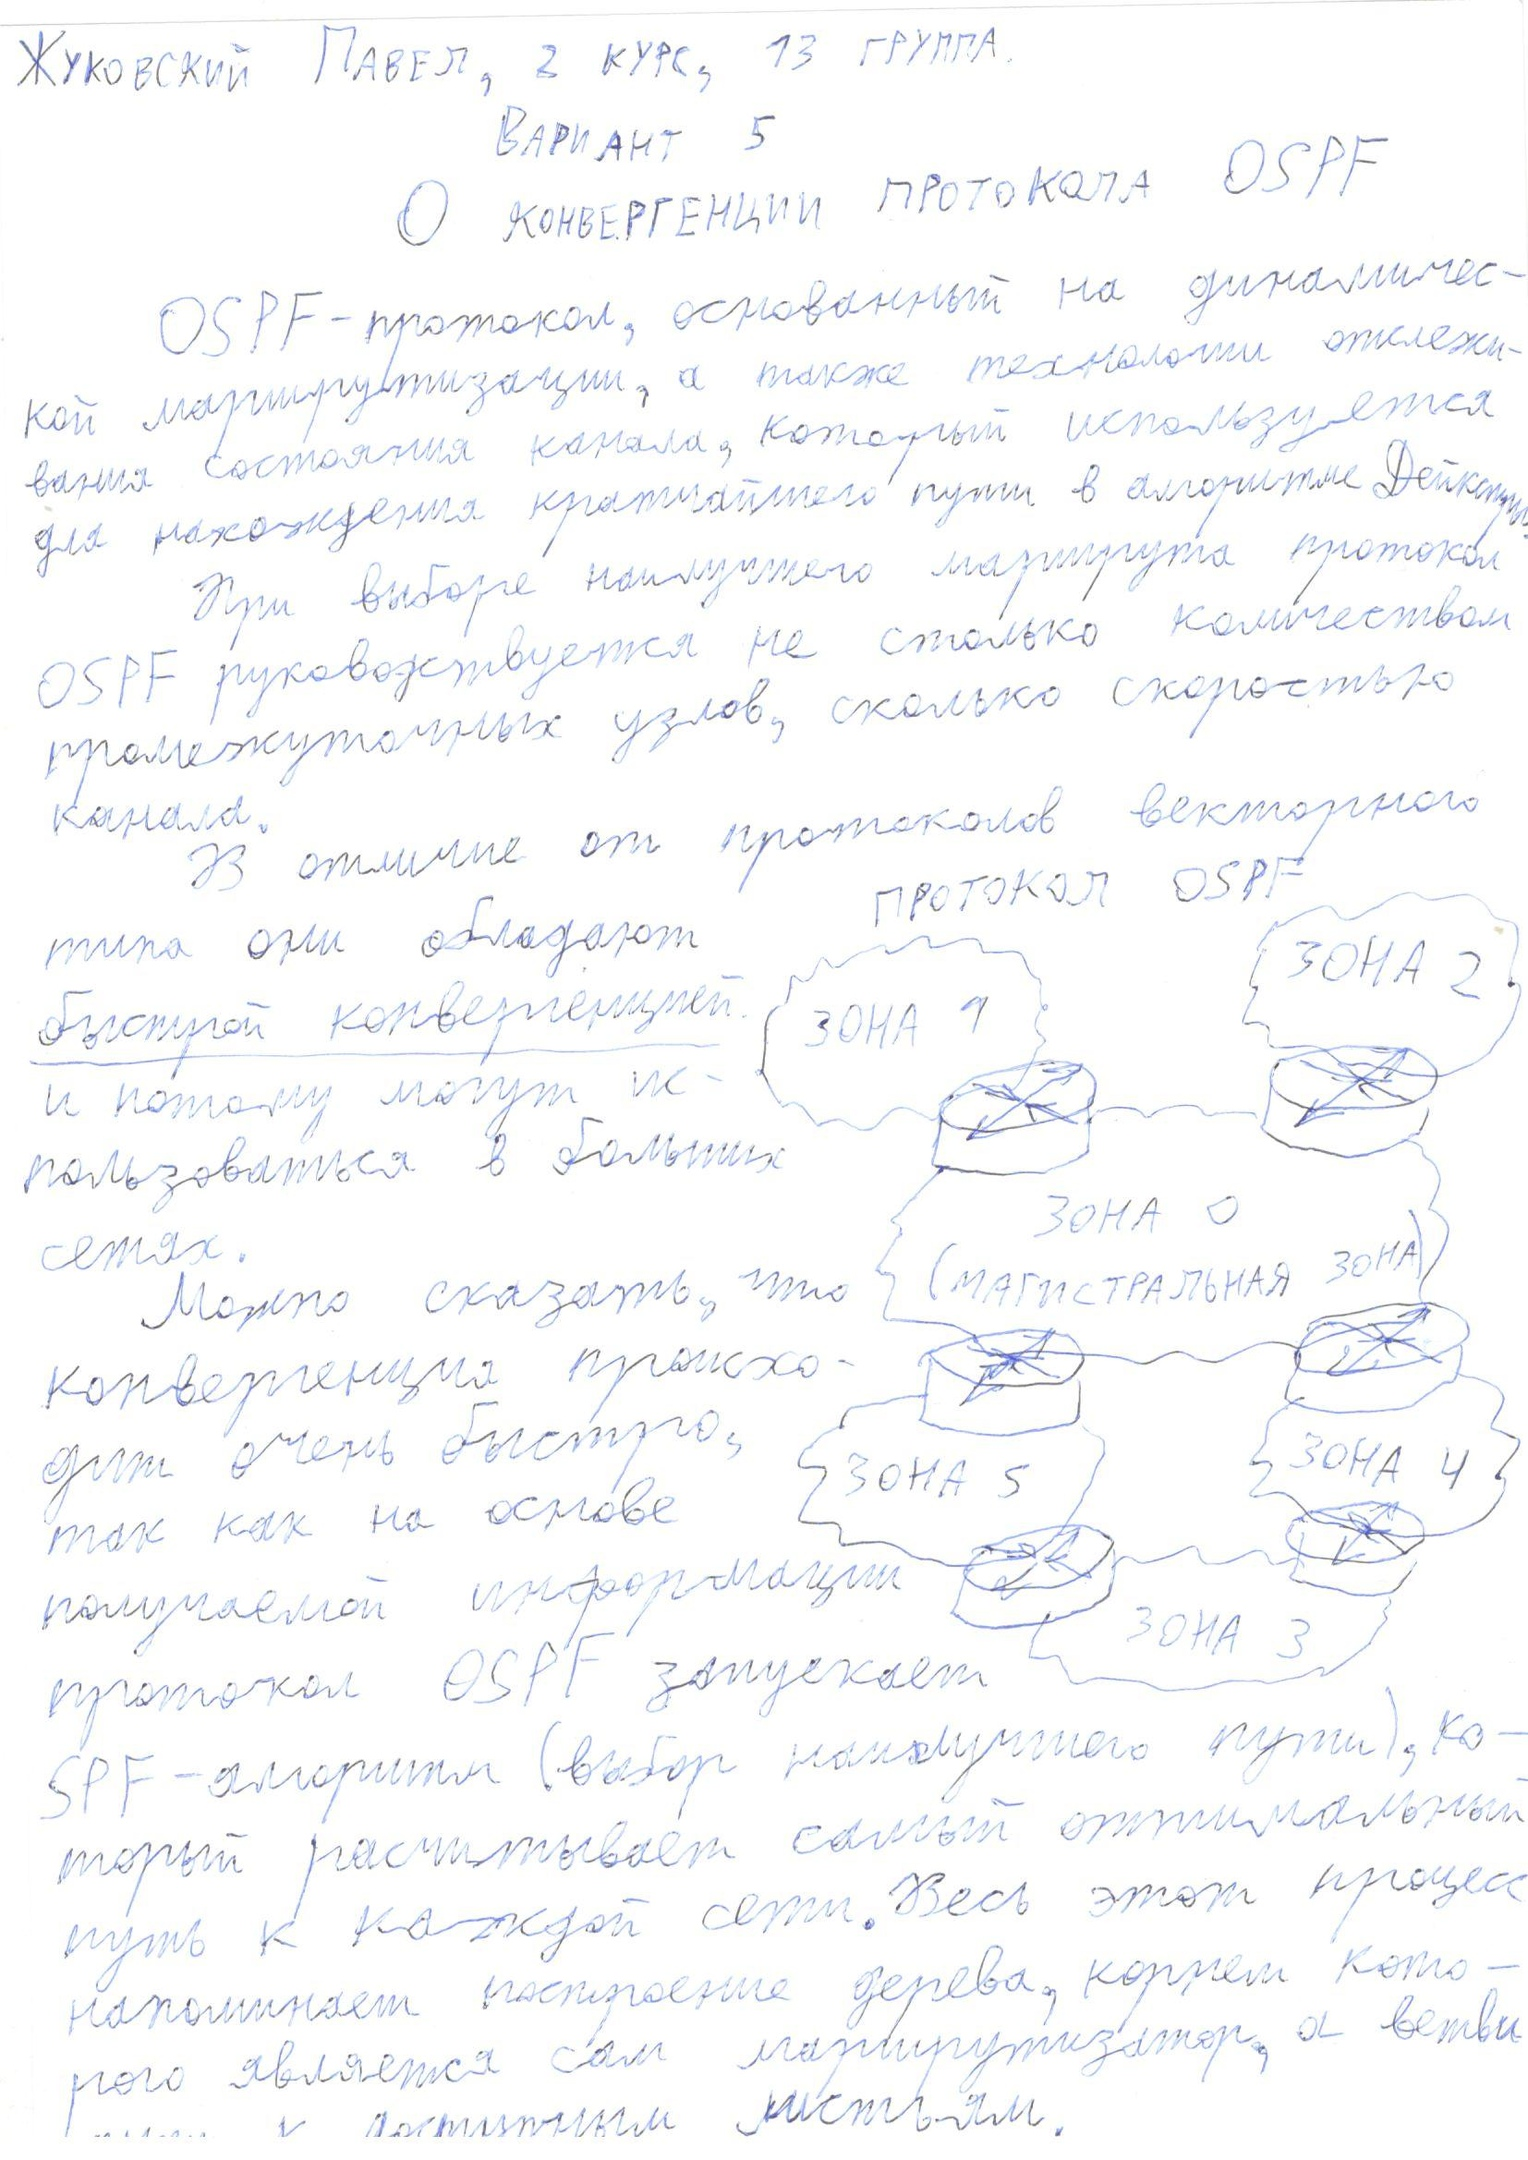 Жуковский Павел, 2 курс, 13 группа.
Вариант 5
О конвергенции протокола OSPF
OSPF-протокол, основанный на динамичес-
кой маршрутизации, а также технологии отслежи-
вания состояния канала, который используется
для нахождения кратчайшего пути в алгоритме Дейкстры.
При выборе наилучшего маршрута протокол
OSPF руководствуется не столько количеством
промежуточных узлов, сколько скоростью
канала.
В отличие от протоколов векторного
типа они обладают
быстрой конвергенцией
и потому могут ис-
пользоваться в больших
сетях.
Можно сказать, что
конвергенция происхо-
дит очень быстро,
так как на основе
получаемой информации
протокол OSPF запускает
SPF-алгоритм (выбор наилучшего пути), ко-
торый расчитывает самый оптимальный
путь к каждой сети. Весь этот процесс
напоминает построение дерева, корнем кото-
рого является сам маршрутизатор, а ветви
к доступным листьям.
ПРОТОКОЛ OSPF
ЗОНА 1
ЗОНА 2
ЗОНА 0
(МАГИСТРАЛЬНАЯ ЗОНА)
ЗОНА 5
ЗОНА 4
ЗОНА 3